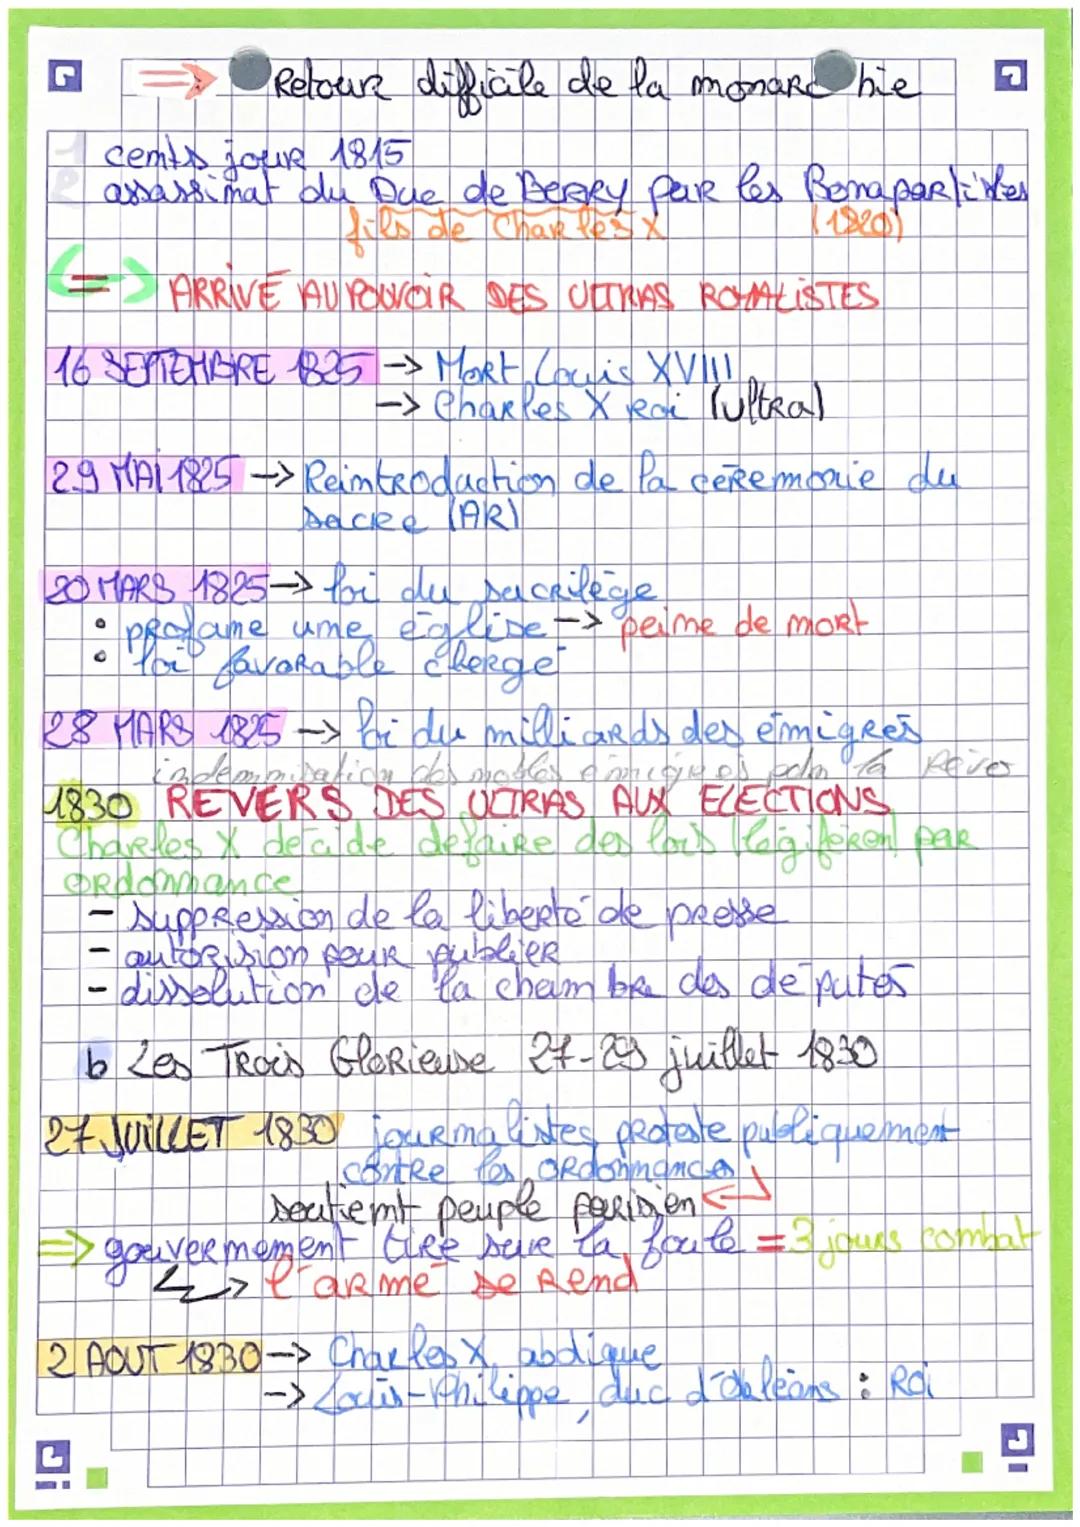 => Retour difficile de la monarchie
cents jour 1815
assassinat du Duc de BERRY par les Bonapartistes
fils de Charles X (1820)
=> ARRIVÉ AU POUVOIR DES ULTRAS ROYALISTES
16 SEPTEMBRE 1825 -> Mort Louis XVIII
-> Charles X roi (ultra)
29 MAI 1825 -> Reintroduction de la céremonie du
sacre (AR)
20 MARS 1825 -> loi du sacrilège
• profane une église -> peine de mort
• loi favorable clergé
28 MARS 1825 -> loi du milliards des émigrés
indemnisation des nobles émigrés pdn la Révo
1830 REVERS DES ULTRAS AUX ELECTIONS
Charles X décide defaire des lois (légiféren) par
ordonnance
- suppression de la liberté de presse
- autorision pour publier
- dissolution de la chambre des députés
b Les Trois Glorieuse 27-29 juillet 1830
27 JUILLET 1830 journalistes proteste publiquement
contre les ordonnances
soutient peuple parisien <-
=> gouvernement tire sur la foule = 3 jours combat
-> l'armé se rend
2 AOUT 1830 -> Charles X abdique
-> Louis-Philippe, duc d'Orléans : Roi